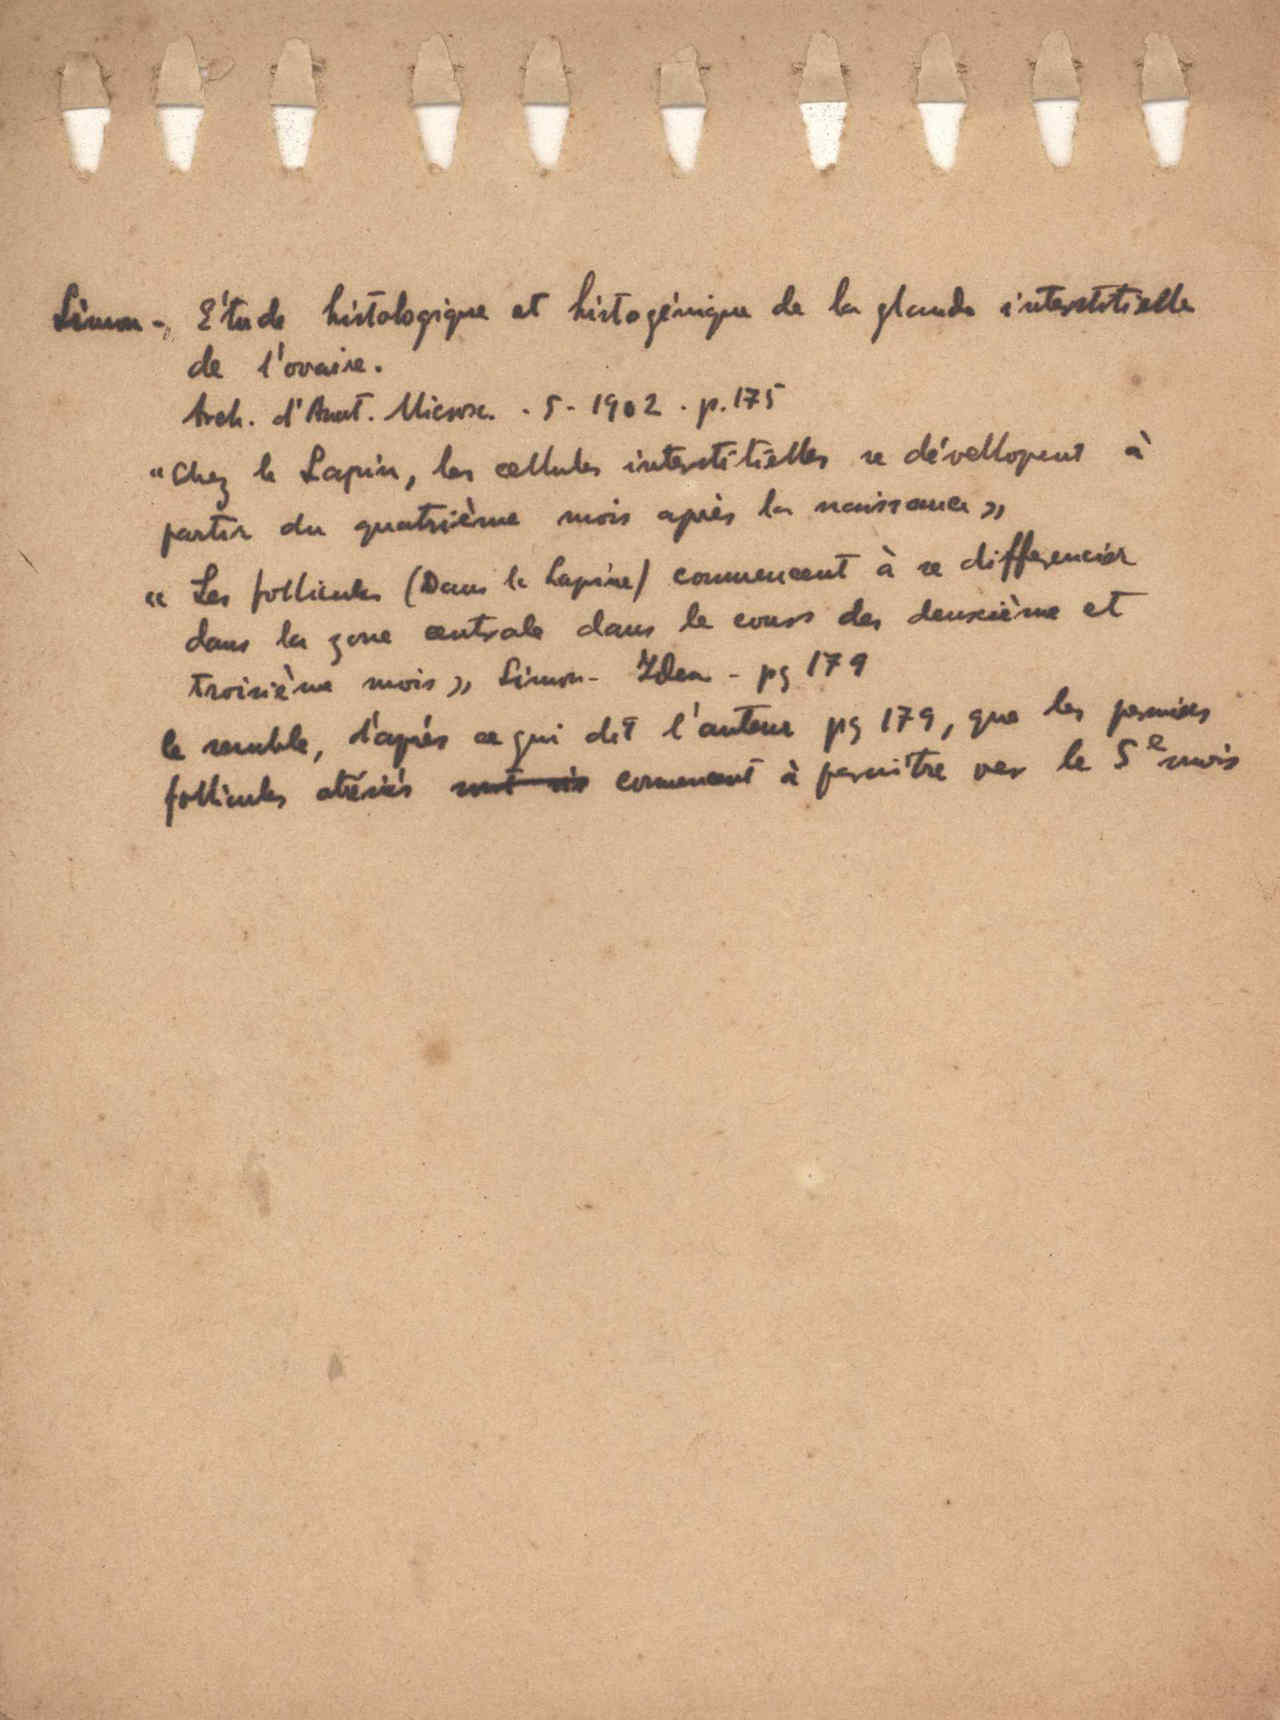 Simon -, Étude histologique et histogénique de la glande interstitielle
de l'ovaire.
Arch. d'Anat. Microsc. . 5 - 1902 . p. 175
"Chez le Lapin, les cellules interstitielles se dévellopent à
partir du quatrième mois après la naissance »
« Les follicules (Dans le Lapine) commencent à se differencier
dans la zone centrale dans le cours des deuxième et
troisième mois » Simon - Idem - pg 179
le semble, d'après ce qui dit l'auteur pg 179, que les premiers
follicules atrésiés commencent à paraître ver le 5e mois